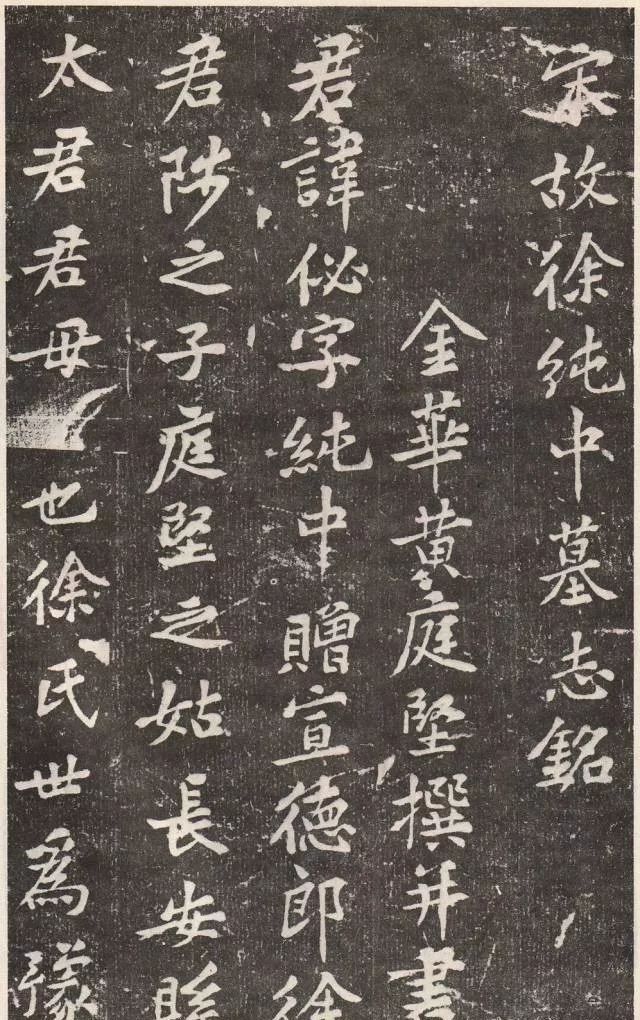 宋故徐純中墓志銘
金華黃庭堅撰并書
君諱佖字純中贈宣德郎徐
君陟之子庭堅之姑長安縣
太君君母也徐氏世爲豫